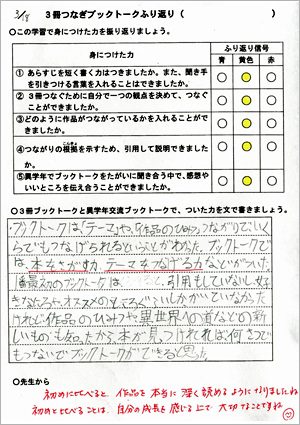 3/18 3冊つなぎブックトークふり返り（ ）
○この学習で身につけた力を振り返りましょう。
身につけた力
ふり返り信号
青 黄色 赤
① あらすじを短く書く力はつきましたか。また、聞き手を引きつける言葉を入れることはできましたか。
② 3冊つなぐために自分で一つの観点を決めて、つなぐことができましたか。
③どのように作品がつながっているかを入れることができましたか。
④つながりの根拠を示すため、引用して説明できましたか。
こんきょ
⑤異学年でブックトークをたがいに聞き合う中で、感想やいいところを伝え合うことができましたか。
○3冊ブックトークと異学年交流ブックトークで、ついた力を文で書きましょう。
ブックトークは「テーマ」や、「作品のひみつ」つながりでいく
らでもつなげられるということがわかった。ブックトークで
は、本をさがす力、テーマをつなげる力などがついた。
最初のブックトークは、引用もしていないし、好
きなところ、オススメのところぐらいしかかいていなかった
けれど作品のひみつや異世界への道などの新
しいものも知ったから本が見つければ、何さつで
もつないでブックトークができると思った。
○先生から
初めに比べると、作品を本当に深く読めるようになりましたね
初めと比べることは、自分の成長を感じる上で大切なことですね